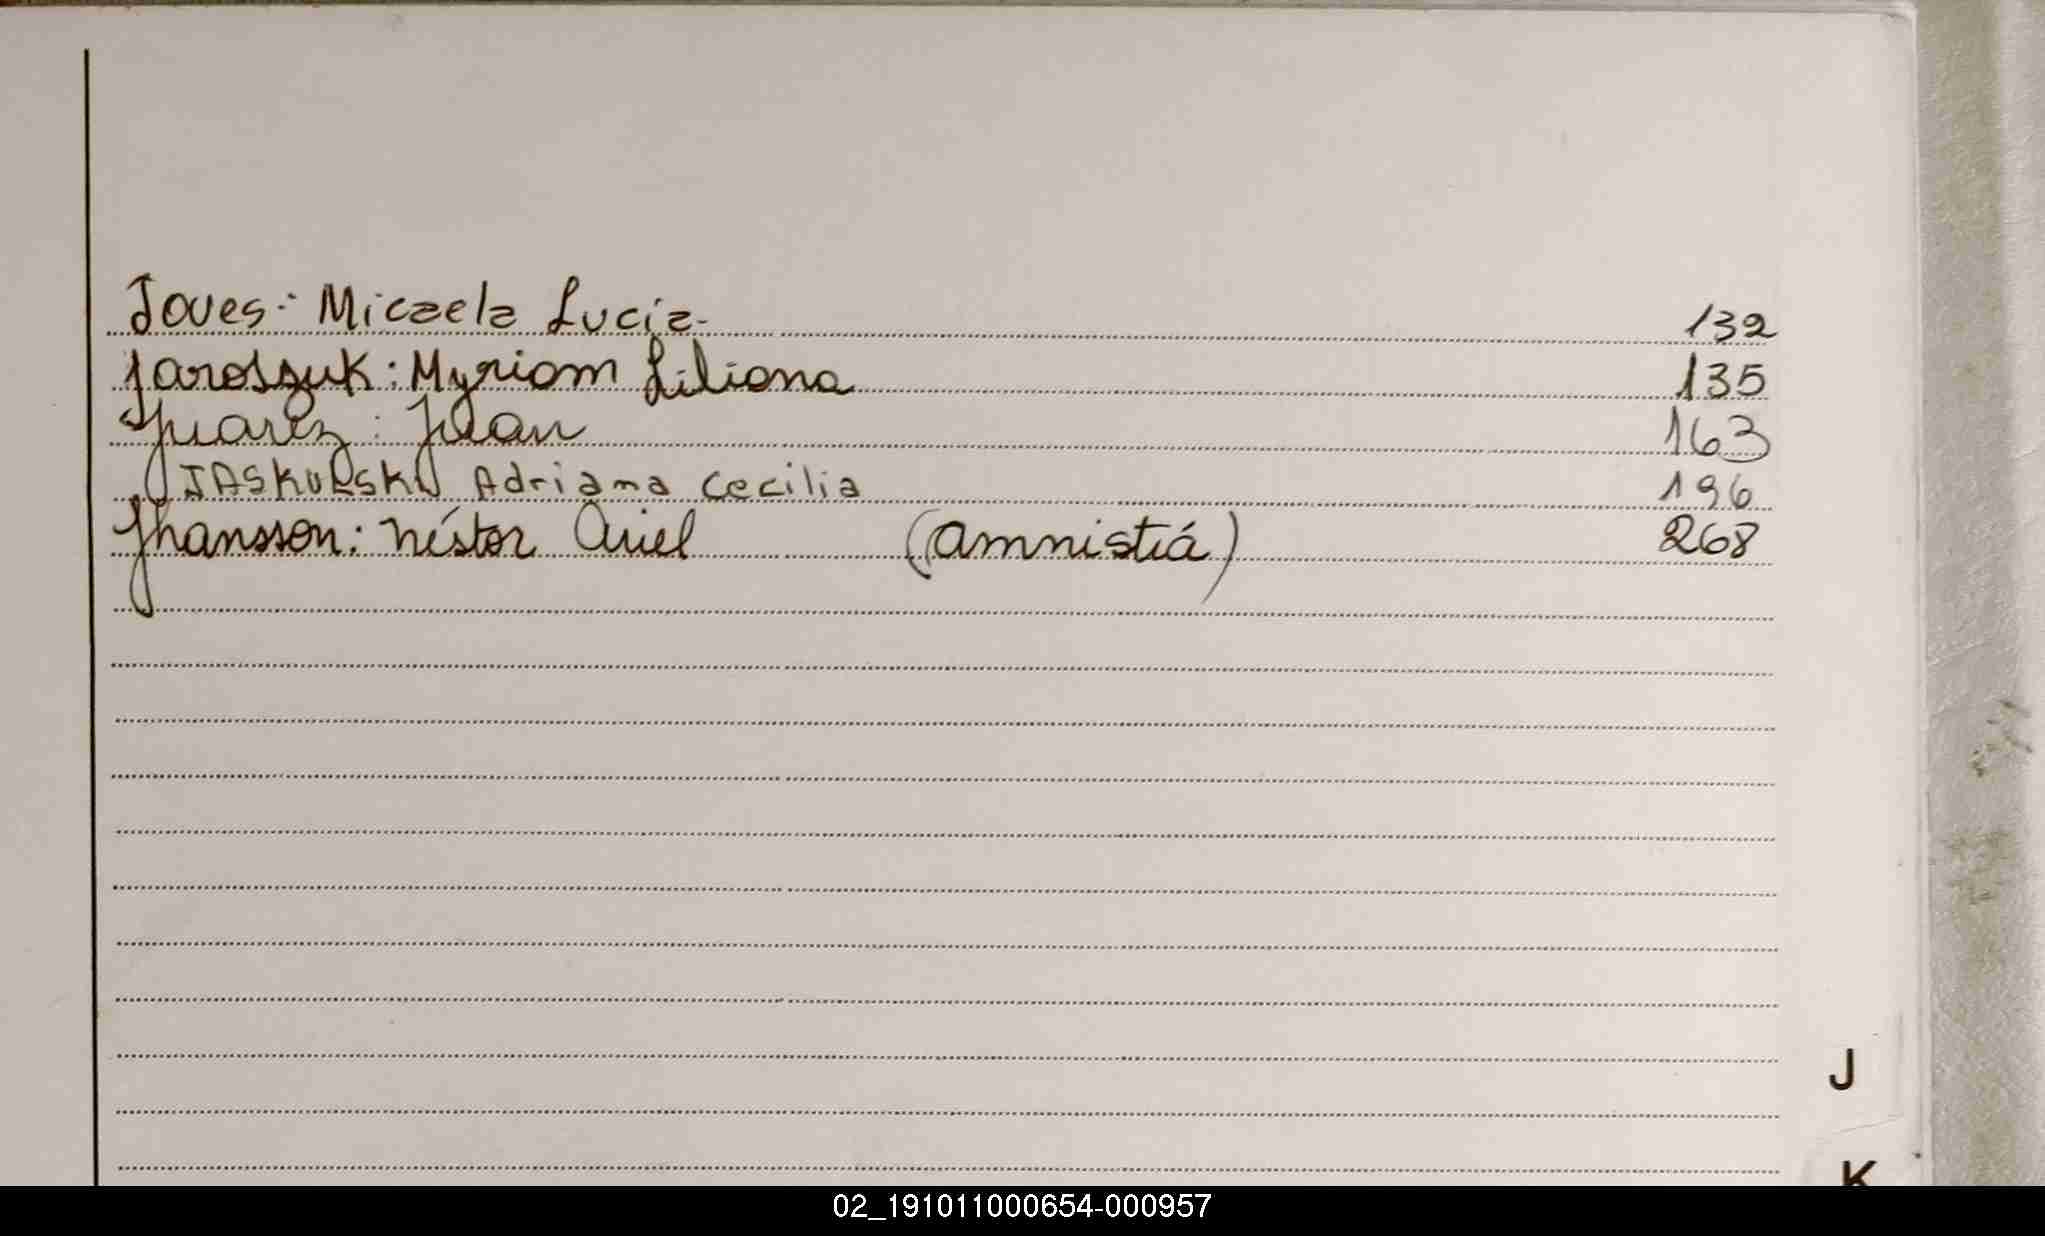 Joves: Micaela Lucía- 132
Jaroszuk: Myriam Liliana 135
Juarez: Juan 163
JASKULSKY Adriana Cecilia 196
Jhansson: Néstor Ariel (amnistiá) 268
J
K
02_191011000654-000957